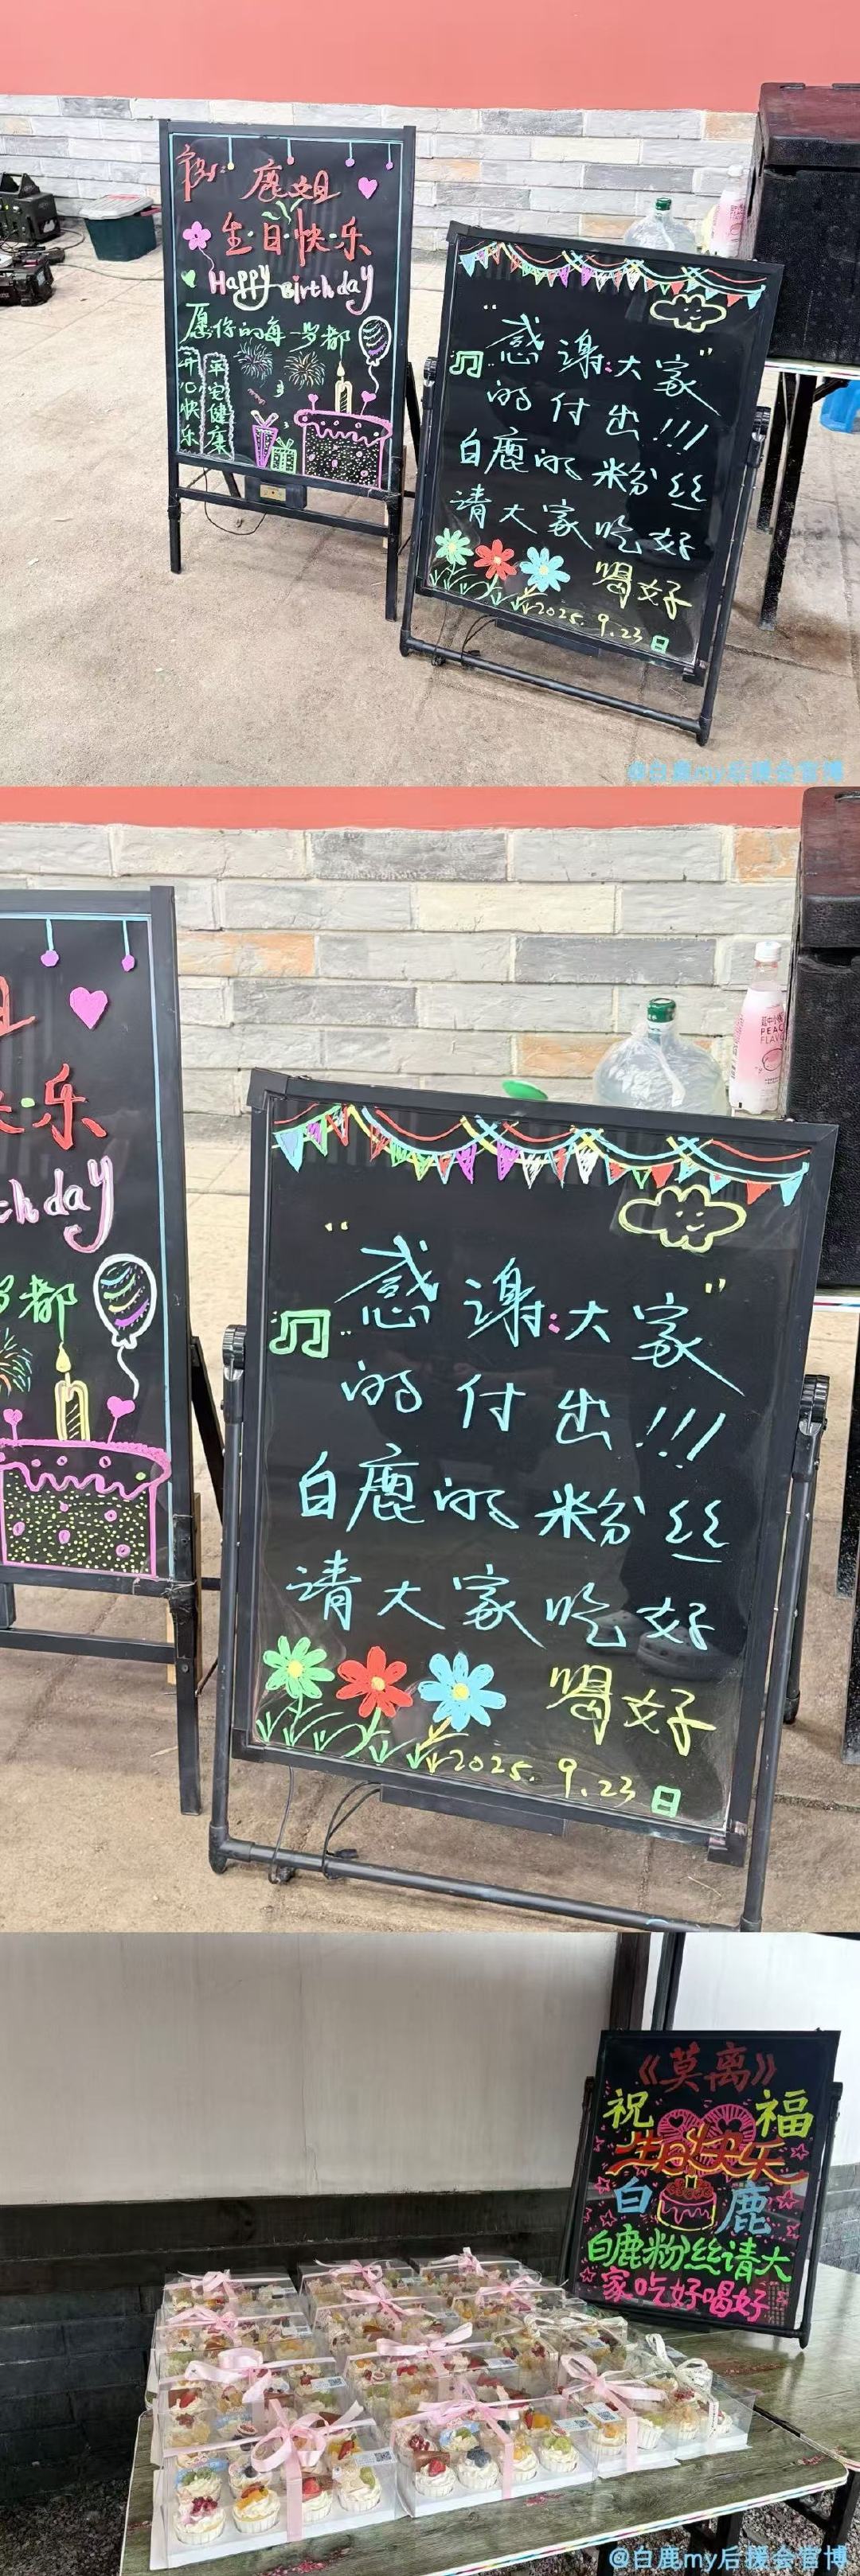 祝:鹿姐
生·日·快·乐
Happy Birthday
愿你的每一岁都
开心快乐
平安健康
"感谢:大家"
的付出!!!
白鹿的粉丝
请大家吃好
喝好
2025.9.23日
@白鹿my后援会官博
姐
快·乐
thday
岁都
PEAC
FLAVO
"感谢:大家"
的付出!!!
白鹿的粉丝
请大家吃好
喝好
2025.9.23日
《莫离》
祝福
生日快乐
白鹿
白鹿粉丝请大
家吃好喝好
@白鹿my后援会官博